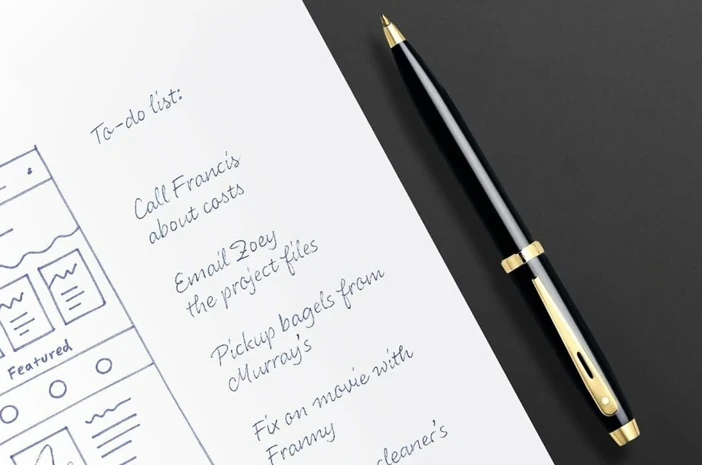 To-do list:
Call Francis
about costs
Email Zoey
the project files
Pickup bagels from
Murray's
Fix on movie with
Franny
cleaner's
Featured